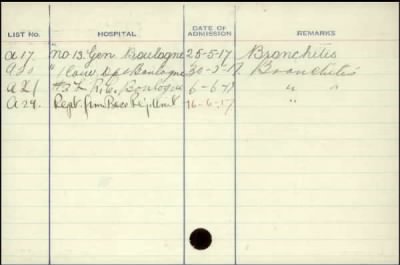 LIST No. HOSPITAL DATE OF ADMISSION REMARKS
a 17 No 13. Gen Boulogne 25-5-17 Bronchitis
a 20 " Conv. Dpt Boulogne 30-5-17 Bronchitis
a 21 Boulogne 6-6-17 " "
a 29. Rept. from Base 16-6-17 "